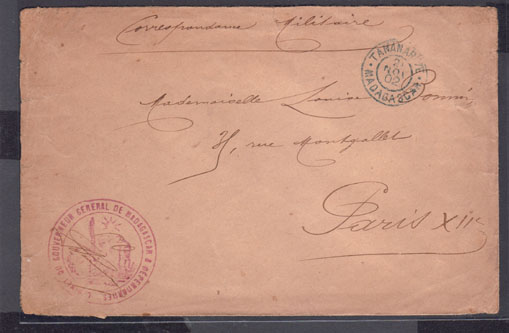 Correspondance Militaire
TANANARIVE
2
MADAGASCAR
Mademoiselle Louise
rue Montgallet
Paris XIIe
GOUVERNEUR GENERAL DE MADAGASCAR & DEPENDANCES